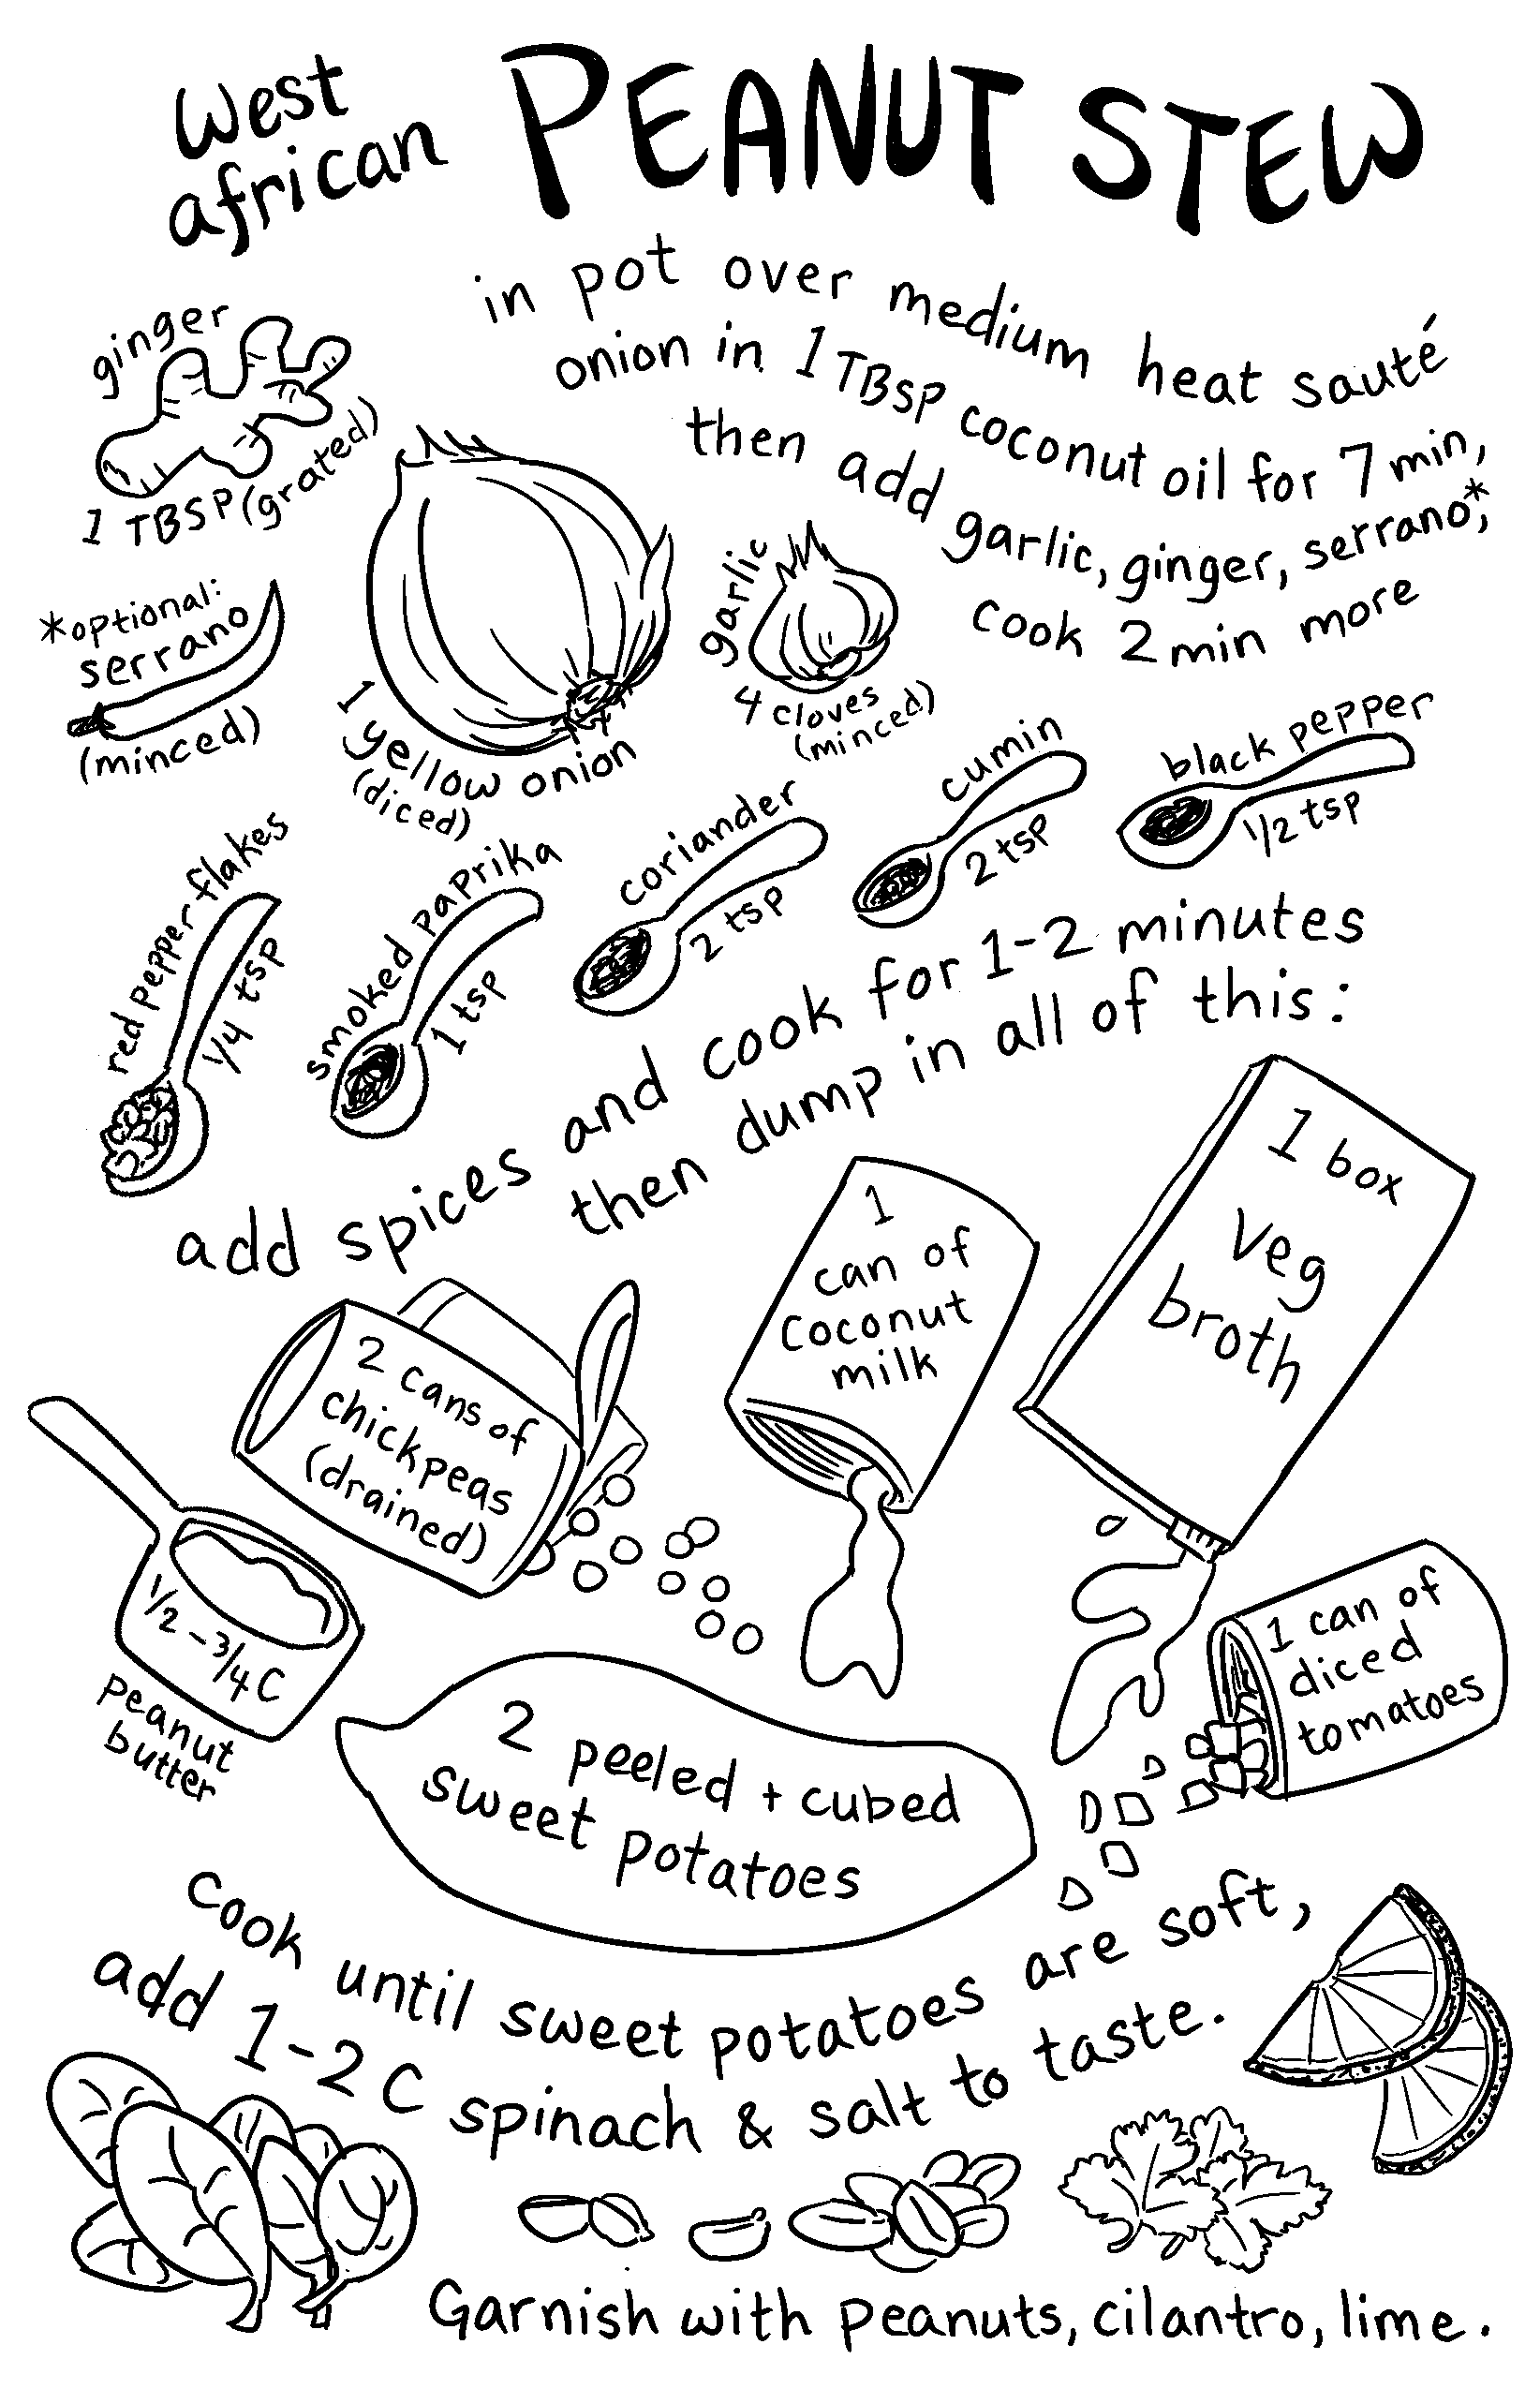 West
african
PEANUT STEW
in pot over medium heat sauté
onion in 1 TBSP coconut oil for 7 min,
then add garlic, ginger, serrano*,
cook 2 min more
ginger
1 TBSP (grated)
*optional:
serrano
(minced)
1 yellow onion
(diced)
garlic
4 cloves
(minced)
red pepper flakes
1/4 tsp
smoked paprika
1 tsp
coriander
2 tsp
cumin
2 tsp
black pepper
1/2 tsp
add spices and cook for 1-2 minutes
then dump in all of this:
1/2-3/4 C
peanut
butter
2 cans of
chickpeas
(drained)
1
can of
coconut
milk
1 box
veg
broth
1 can of
diced
tomatoes
2 peeled + cubed
sweet potatoes
cook until sweet potatoes are soft,
add 1-2 C spinach & salt to taste.
Garnish with peanuts, cilantro, lime.